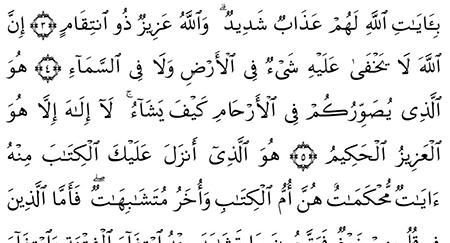 بِـَٔايَٰتِ ٱللَّهِ لَهُمْ عَذَابٌ شَدِيدٌ ۗ وَٱللَّهُ عَزِيزٌ ذُو ٱنتِقَامٍ ﴿٣﴾ إِنَّ
ٱللَّهَ لَا يَخْفَىٰ عَلَيْهِ شَىْءٌ فِى ٱلْأَرْضِ وَلَا فِى ٱلسَّمَآءِ ﴿٤﴾ هُوَ
ٱلَّذِى يُصَوِّرُكُمْ فِى ٱلْأَرْحَامِ كَيْفَ يَشَآءُ ۚ لَآ إِلَٰهَ إِلَّا هُوَ
ٱلْعَزِيزُ ٱلْحَكِيمُ ﴿٥﴾ هُوَ ٱلَّذِىٓ أَنزَلَ عَلَيْكَ ٱلْكِتَٰبَ مِنْهُ
ءَايَٰتٌ مُّحْكَمَٰتٌ هُنَّ أُمُّ ٱلْكِتَٰبِ وَأُخَرُ مُتَشَٰبِهَٰتٌ ۖ فَأَمَّا ٱلَّذِينَ